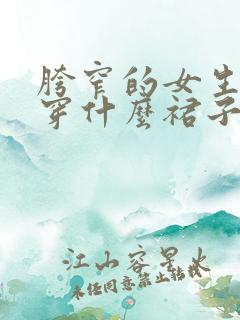 胯窄的女生
穿什麼裙子
江山容星火
未经同意禁止转载